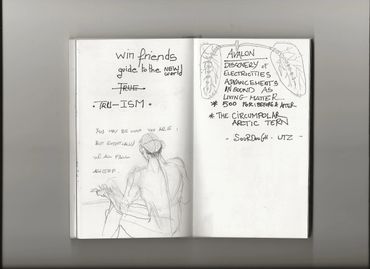 win friends
guide to the NEW world
TRUE
• TRU-ISM •
YOU MAY BE WHAT YOU ARE,
BUT EVENTUALLY
WE ALL FALL
ASLEEP.
AVALON
DISCOVERY of
ELECTRICITIES
ADVANCEMENTS
AS LIVING MATTER
* 1500 FOR: BEFORE & AFTER
* THE CIRCUMPOLAR
ARCTIC TERN
- SOURDOUGH - UTZ -